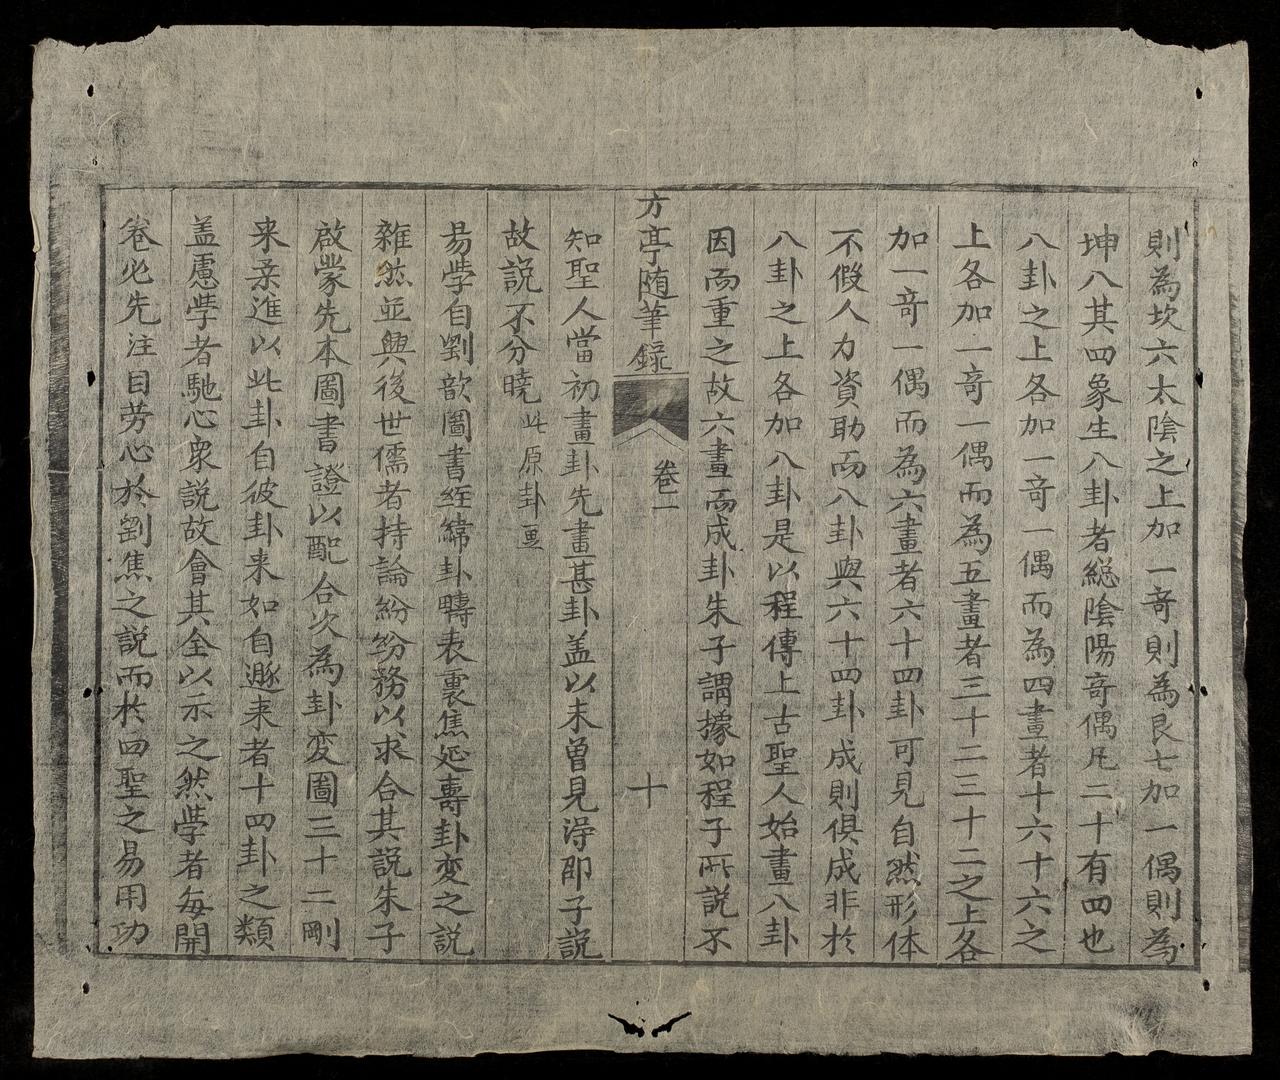 則為坎六太陰之上加一竒則為艮七加一偶則為
坤八其四象生八卦者総陰陽竒偶凡二十有四也
八卦之上各加一竒一偶而為四畫者十六十六之
上各加一竒一偶而為五畫者三十二三十二之上各
加一竒一偶而為六畫者六十四卦可見自然形体
不假人力資助而八卦與六十四卦成則俱成非扵
八卦之上各加八卦是以程傳上古聖人始畫八卦
因而重之故六畫而成卦朱子謂據如程子所説不
方亭随筆録
卷一
十
知聖人當初畫卦先畫甚卦盖以未曽見淂邵子説
故説不分曉 此原卦画
易學自劉歆圖書經緯卦疇表裏焦延壽卦変之説
雜然並興後世儒者持論紛紛務以求合其説朱子
啟蒙先本圖書證以配合次為卦変圖三十二剛
来柔進以此卦自彼卦来如自遯来者十四卦之類
盖慮學者馳心衆説故會其全以示之然學者每開
卷必先注目劳心於劉焦之説而扵四聖之易用功